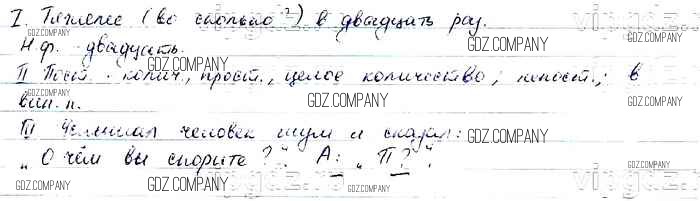 I. Тяжелее (во сколько?) в двадцать раз.
Н.ф. - двадцать.
II Пост. - колич., прост., целое количество; непост.; в
вин. п.
III Услышал человек шум и сказал:
„О чём вы спорите?". А: „П?".
GDZ.COMPANY
GDZ.COMPANY
GDZ.COMPANY
GDZ.COMPANY
GDZ.COMPANY
GDZ.COMPANY
GDZ.COMPANY
GDZ.COMPANY
GDZ.COMPANY
GDZ.COMPANY
GDZ.COMPANY